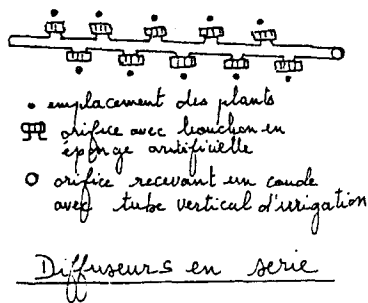 • emplacement des plants
orifice avec bouchon en
éponge artificielle
O orifice recevant un coude
avec tube vertical d'irrigation
Diffuseurs en serie